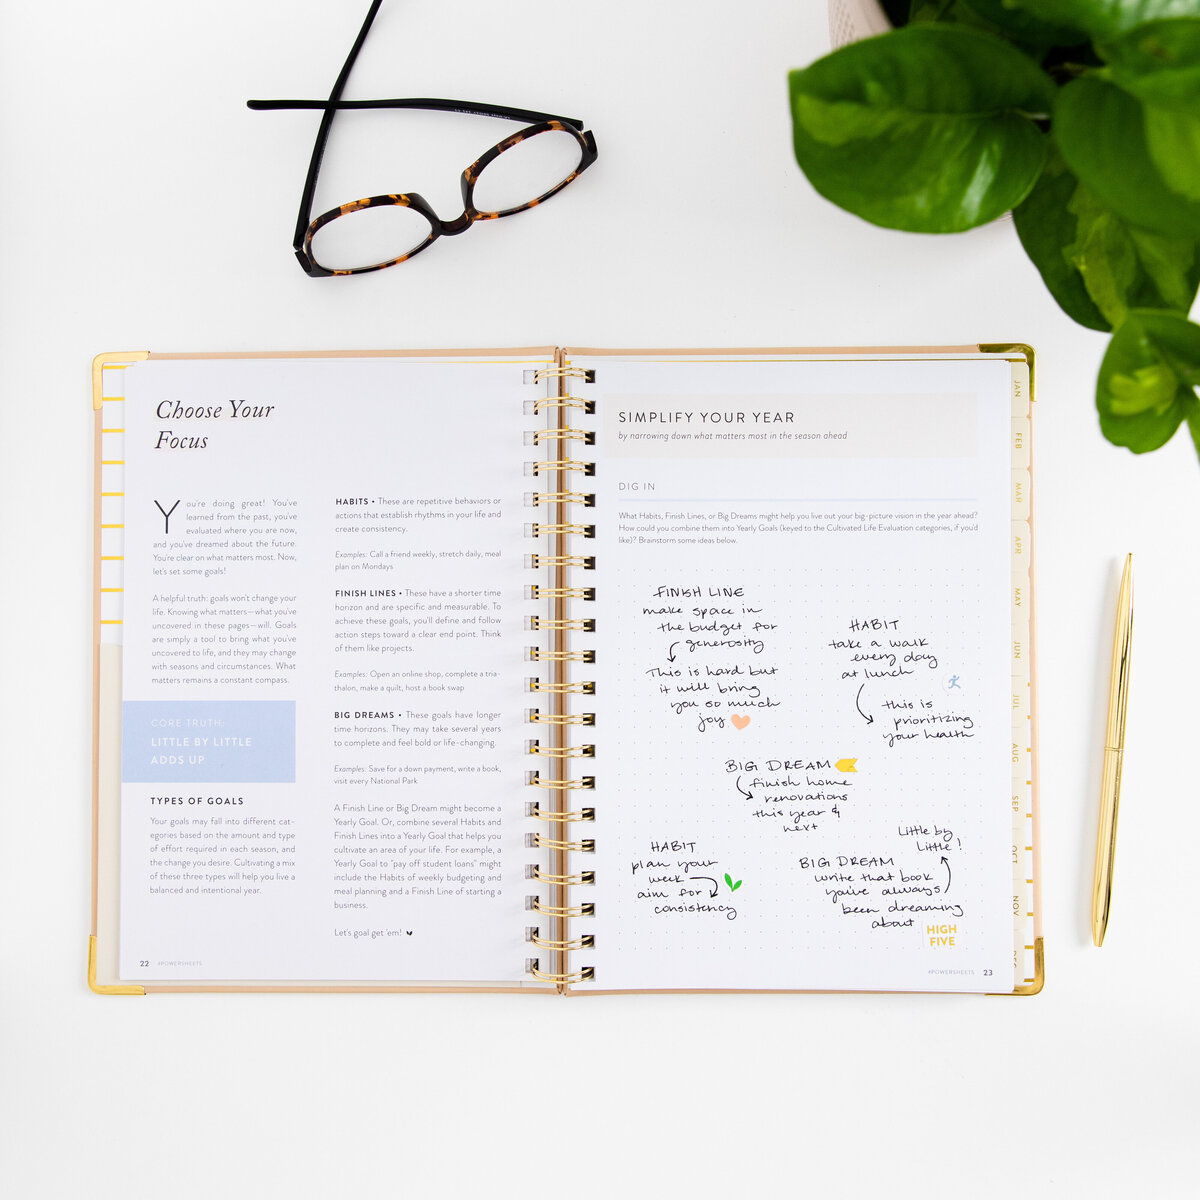 Choose Your
Focus
You're doing great! You've
learned from the past, you've
evaluated where you are now,
and you've dreamed about the future.
You're clear on what matters most. Now,
let's set some goals!
A helpful truth: goals won't change your
life. Knowing what matters—what you've
uncovered in these pages—will. Goals
are simply a tool to bring what you've
uncovered to life, and they may change
with seasons and circumstances. What
matters remains a constant compass.
CORE TRUTH:
LITTLE BY LITTLE
ADDS UP
TYPES OF GOALS
Your goals may fall into different cat-
egories based on the amount and type
of effort required in each season, and
the change you desire. Cultivating a mix
of these three types will help you live a
balanced and intentional year.
HABITS • These are repetitive behaviors or
actions that establish rhythms in your life and
create consistency.
Examples: Call a friend weekly, stretch daily, meal
plan on Mondays
FINISH LINES • These have a shorter time
horizon and are specific and measurable. To
achieve these goals, you'll define and follow
action steps toward a clear end point. Think
of them like projects.
Examples: Open an online shop, complete a tria-
thalon, make a quilt, host a book swap
BIG DREAMS • These goals have longer
time horizons. They may take several years
to complete and feel bold or life-changing.
Examples: Save for a down payment, write a book,
visit every National Park
A Finish Line or Big Dream might become a
Yearly Goal. Or, combine several Habits and
Finish Lines into a Yearly Goal that helps you
cultivate an area of your life. For example, a
Yearly Goal to "pay off student loans" might
include the Habits of weekly budgeting and
meal planning and a Finish Line of starting a
business.
Let's goal get 'em!
22 #POWERSHEETS
SIMPLIFY YOUR YEAR
by narrowing down what matters most in the season ahead
DIG IN
What Habits, Finish Lines, or Big Dreams might help you live out your big-picture vision in the year ahead?
How could you combine them into Yearly Goals (keyed to the Cultivated Life Evaluation categories, if you'd
like)? Brainstorm some ideas below.
FINISH LINE
make space in
the budget for
generosity
This is hard but
it will bring
you so much
joy
HABIT
take a walk
every day
at lunch
this is
prioritizing
your health
BIG DREAM
finish home
renovations
this year &
next
HABIT
plan your
week
aim for
consistency
Little by
Little!
BIG DREAM
write that book
you've always
been dreaming
about
HIGH
FIVE
#POWERSHEETS 23
JAN
FEB
MAR
APR
MAY
JUN
JUL
AUG
SEP
OCT
NOV
DEC